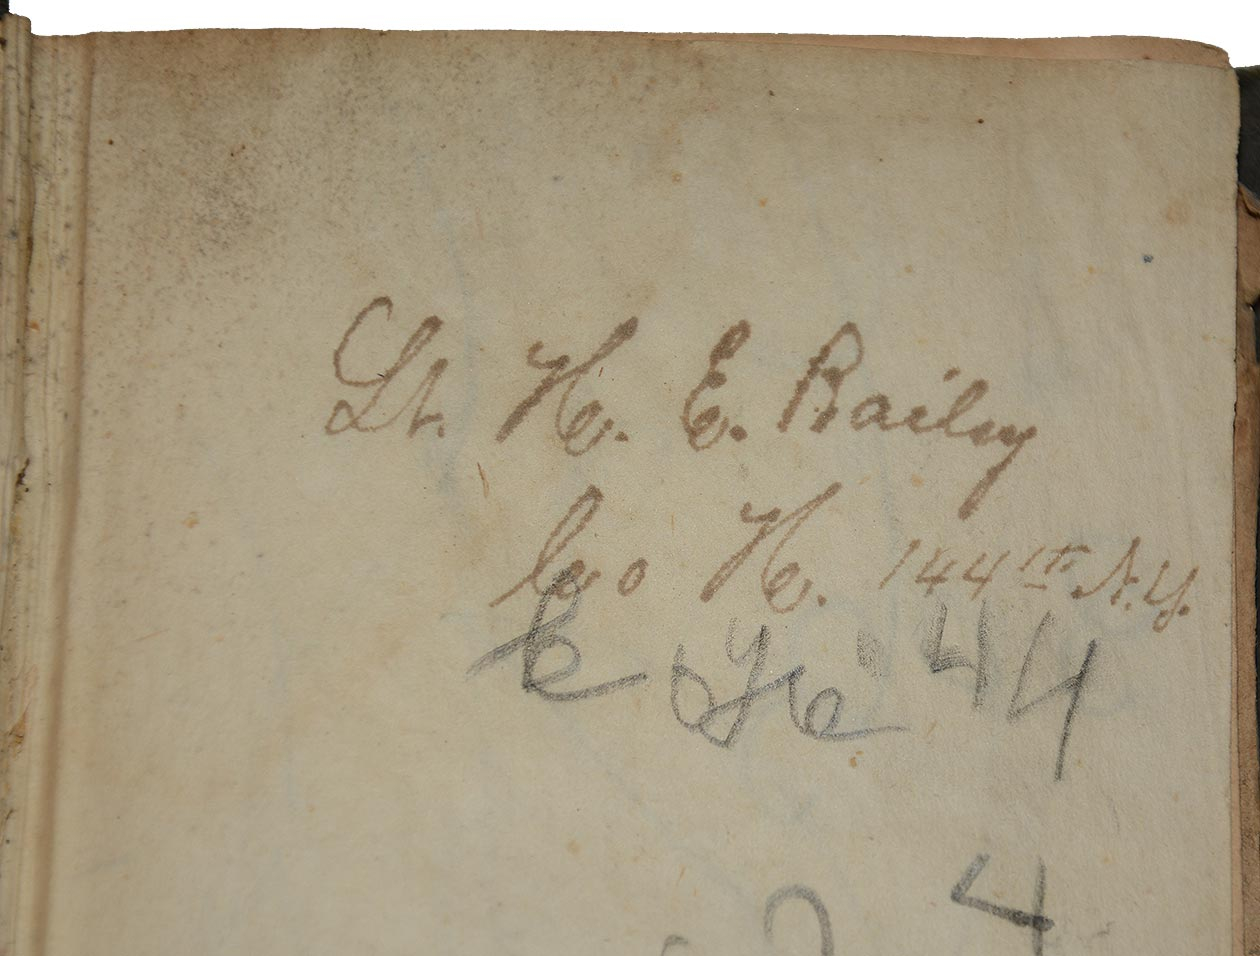 Lt. H. E. Bailey
Co H. 144th N.Y.
Co H 44
4